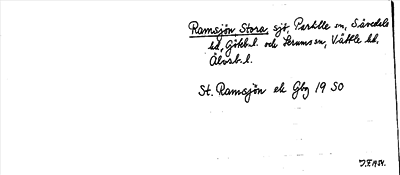 Ramsjön Stora, sjö, Partille sn, Sävedals
hd, Götebl. och Lerums sn, Vättle hd,
Älvsb. l.
St. Ramsjön ek Gbg 19 50
J.F. 1954.